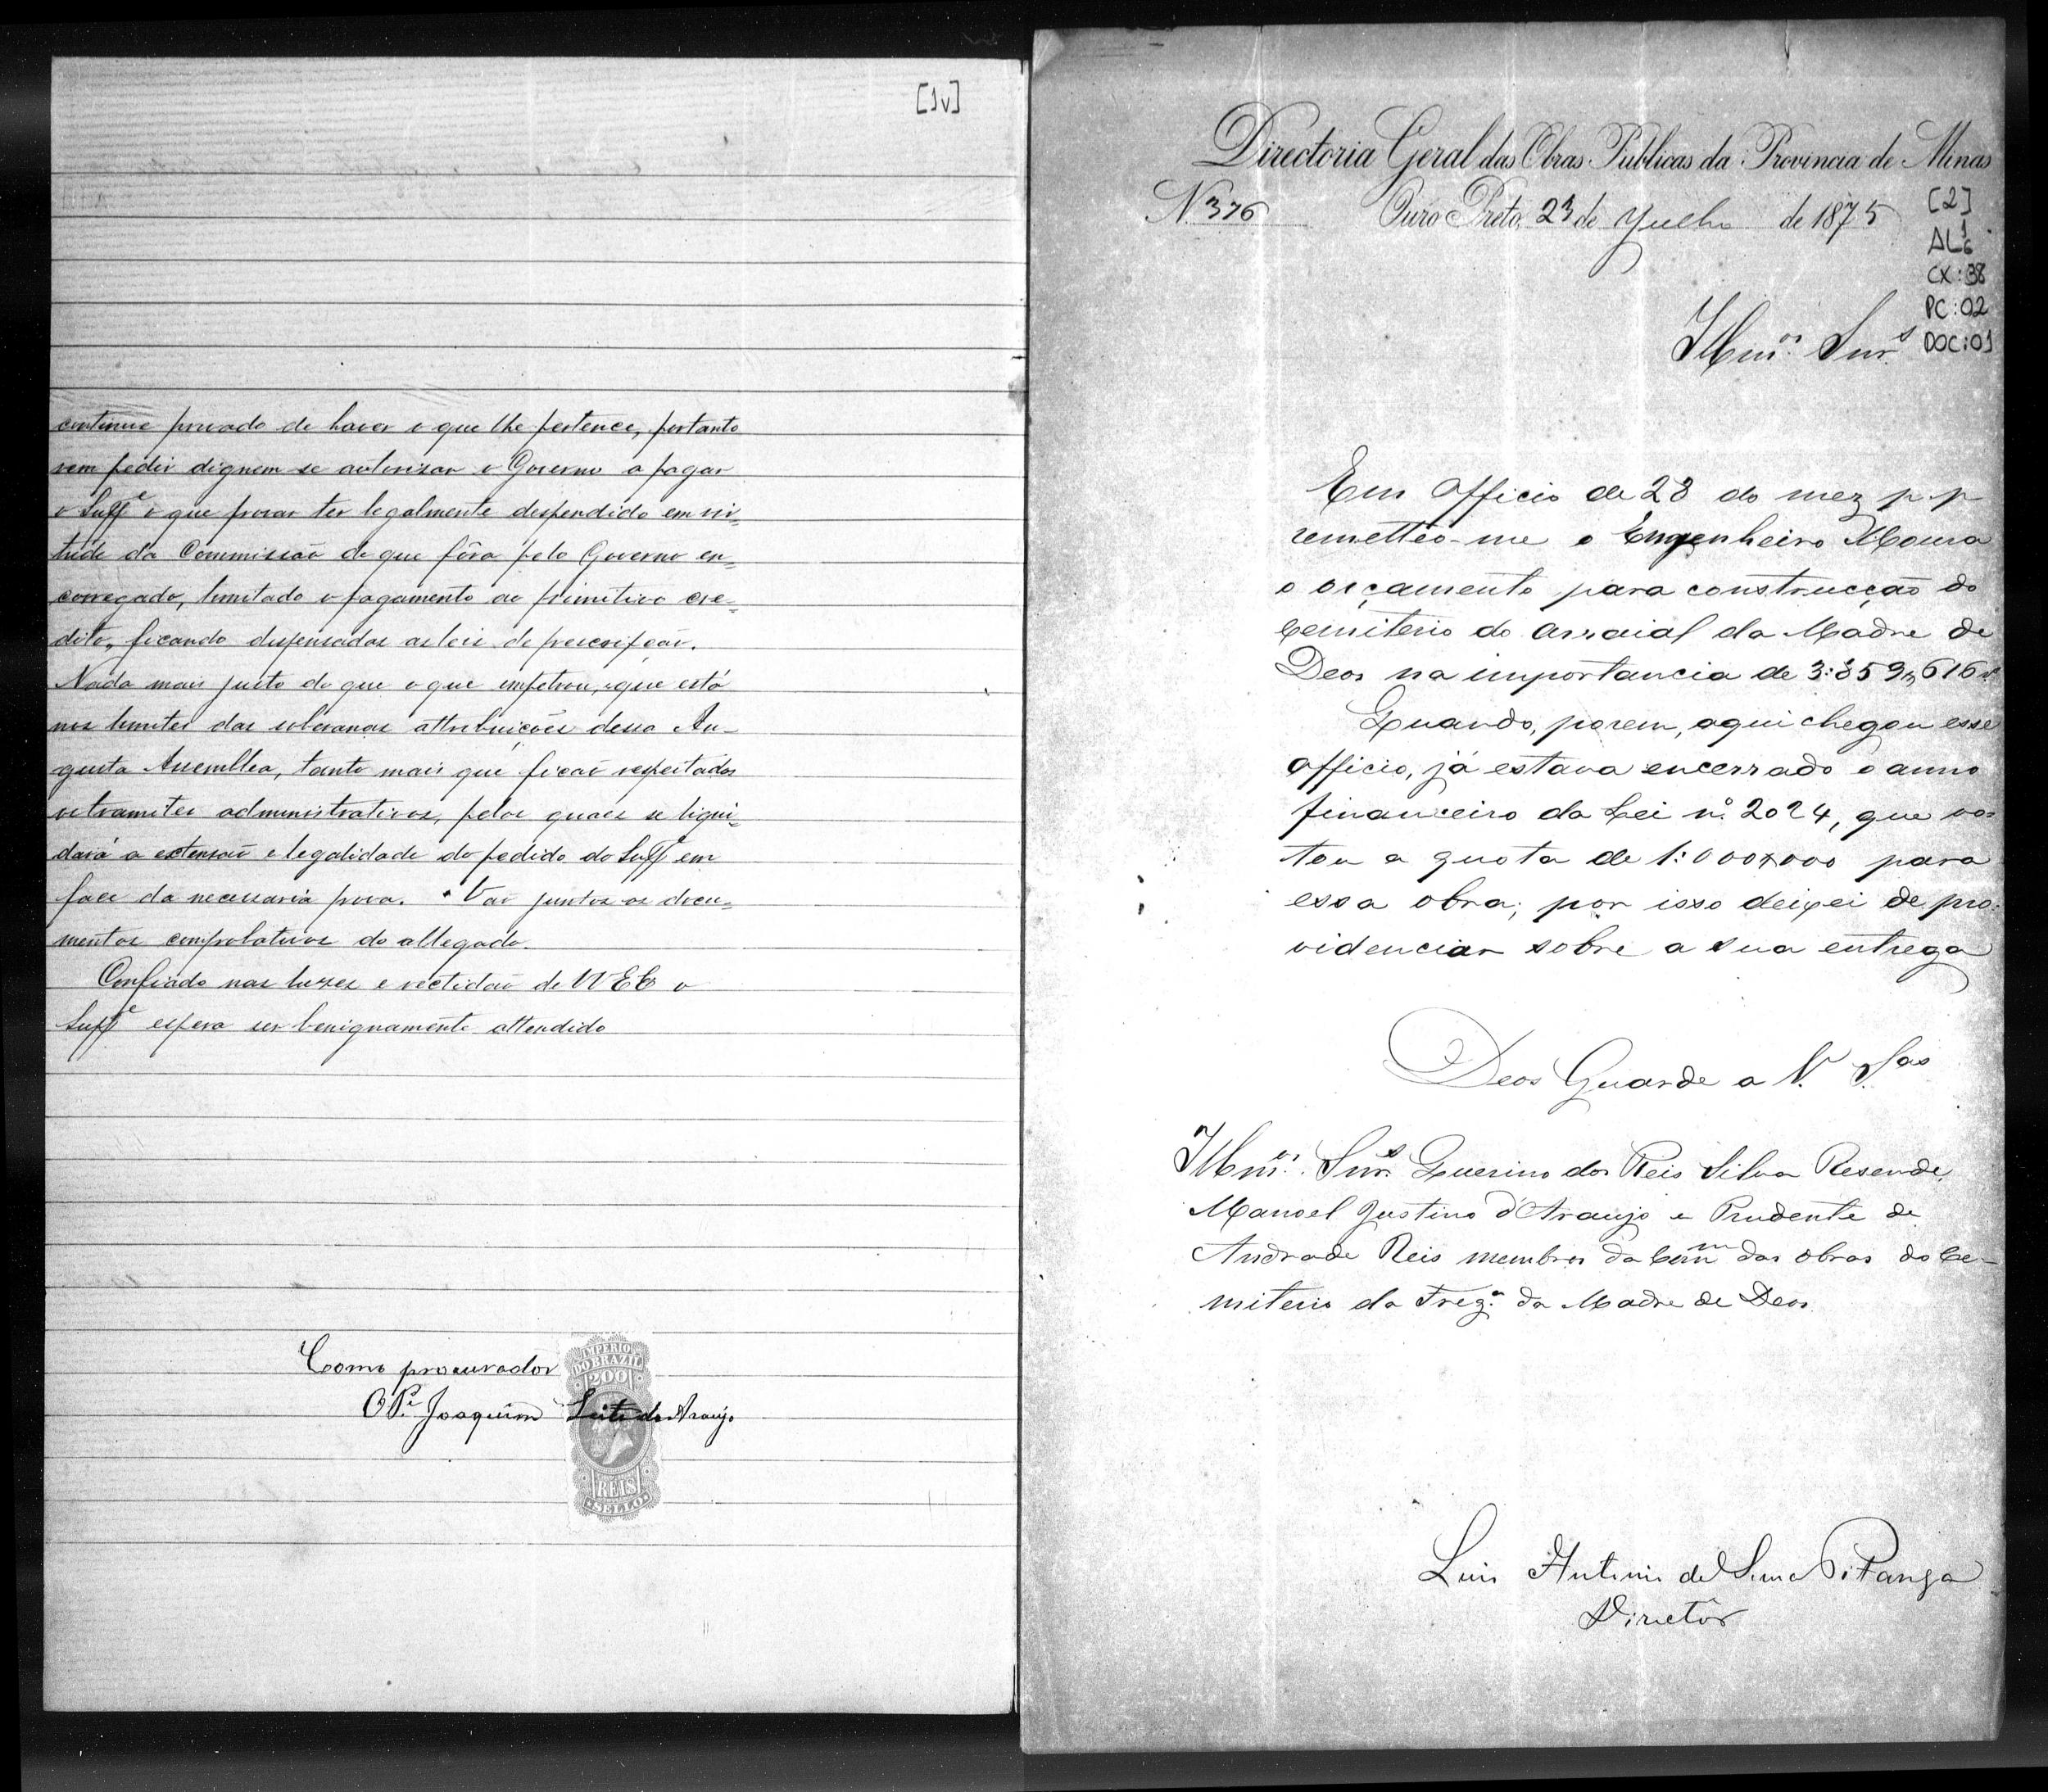 [1v]
continue privado de haver o que lhe pertence, portanto
vem pedir dignem se autorisar o Governo a pagar
o Supp.e o que provar ter legalmente despendido em vir=
tude da Commissão de que fôra pelo Governo en=
carregado, limitado o pagamento ao primitivo cre=
dito, ficando dispensadas as leis de prescripção.
Nada mais justo do que o que impetrou, e que está
nos limites das soberanas attribuições dessa Au-
gusta Assemblea, tanto mais que ficão respeitados
os tramites administrativos, pelos quaes se liqui=
dará a extensão e legalidade do pedido do Supp.e em
face da necessaria prova. Vão juntos os docu=
mentos comprobativos do allegado.
Confiado nas luzes e rectidão de VV EEx o
Supp.e espera ser benignamente attendido
Como procurador
O P.e Joaquim Leite de Araujo
IMPERIO
DO BRAZIL
200
RÉIS
SELLO
Directoria Geral das Obras Publicas da Provincia de Minas
N. 376 Ouro Preto, 23 de Julho de 1875
[2]
AL 1
6
CX: 38
PC: 02
DOC: 01
Illm.os Snr.s
Em officio de 28 do mez p. p.
remetteo-me o Engenheiro Moura
o orçamento para construcção do
Cemiterio do Arraial da Madre de
Deos na importancia de 3:859$616 rs
Quando, porem, aqui chegou esse
officio, já estava encerrado o anno
financeiro da Lei n.º 2024, que vo-
tou a quota de 1:000$000 para
essa obra; por isso deixei de pro-
videnciar sobre a sua entrega
Deos Guarde a V. S.as
Illm.os Snr.s Querino dos Reis Silva Resende,
Manoel Justino d'Araujo e Prudente de
Andrade Reis membros da Comm.m das obras do Ce-
miterio da Freg.a da Madre de Deos.
Luis Antonio de Souza Pitanga
Diretôr